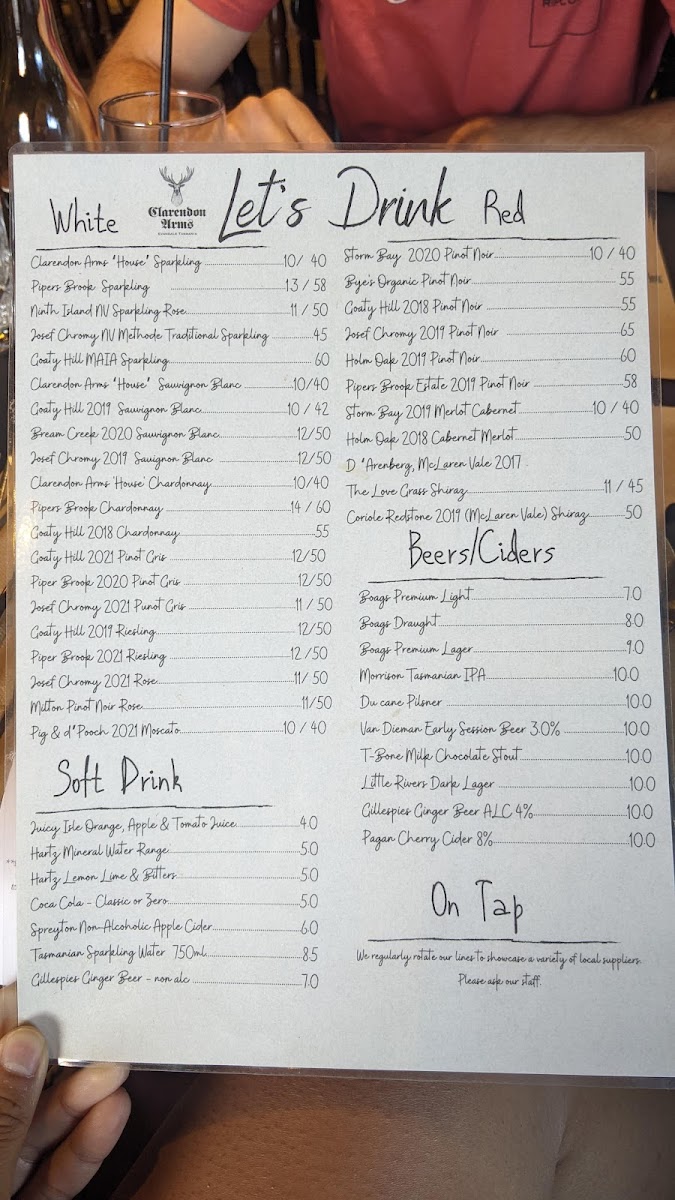 Clarendon
Arms
Let's Drink
White
Clarendon Arms "House" Sparkling 10/ 40
Pipers Brook Sparkling 13 / 58
Ninth Island NV Sparkling Rose 11 / 50
Josef Chromy NV Methode Traditional Sparkling 45
Goaty Hill MAIA Sparkling 60
Clarendon Arms "House" Sauvignon Blanc 10/40
Goaty Hill 2019 Sauvignon Blanc 10 / 42
Bream Creek 2020 Sauvignon Blanc 12/50
Josef Chromy 2019 Sauvignon Blanc 12/50
Clarendon Arms 'House' Chardonnay 10/40
Pipers Brook Chardonnay 14 / 60
Goaty Hill 2018 Chardonnay 55
Goaty Hill 2021 Pinot Gris 12/50
Piper Brook 2020 Pinot Gris 12/50
Josef Chromy 2021 Punot Gris 11 / 50
Goaty Hill 2019 Riesling 12/50
Piper Brook 2021 Riesling 12 /50
Josef Chromy 2021 Rose 11/ 50
Milton Pinot Noir Rose 11/50
Pig & d'Pooch 2021 Moscato 10 / 40
Soft Drink
Juicy Isle Orange, Apple & Tomato Juice 4.0
Hartz Mineral Water Range 5.0
Hartz Lemon Lime & Bitters 5.0
Coca Cola - Classic or Zero 5.0
Spreyton Non-Alcoholic Apple Cider 6.0
Tasmanian Sparkling Water 750mL 8.5
Gillespies Ginger Beer - non alc 7.0
Red
Storm Bay 2020 Pinot Noir 10 / 40
Bye's Organic Pinot Noir 55
Goaty Hill 2018 Pinot Noir 55
Josef Chromy 2019 Pinot Noir 65
Holm Oak 2019 Pinot Noir 60
Pipers Brook Estate 2019 Pinot Noir 58
Storm Bay 2019 Merlot Cabernet 10 / 40
Holm Oak 2018 Cabernet Merlot 50
D 'Arenberg, McLaren Vale 2017
The Love Grass Shiraz 11 / 45
Coriole Redstone 2019 (McLaren Vale) Shiraz 50
Beers/Ciders
Boags Premium Light 7.0
Boags Draught 8.0
Boags Premium Lager 9.0
Morrison Tasmanian IPA 10.0
Du cane Pilsner 10.0
Van Dieman Early Session Beer 3.0% 10.0
T-Bone Milk Chocolate Stout 10.0
Little Rivers Dark Lager 10.0
Gillespies Ginger Beer ALC 4% 10.0
Pagan Cherry Cider 8% 10.0
On Tap
We regularly rotate our lines to showcase a variety of local suppliers.
Please ask our staff.